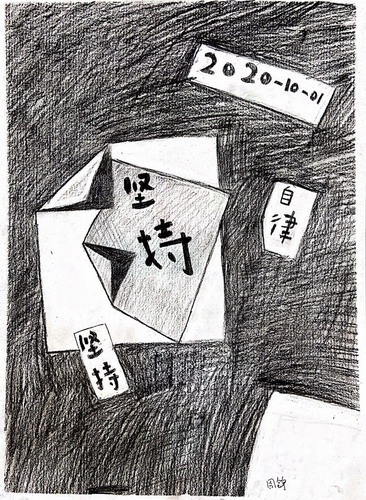 2020-10-01
坚
持
自
律
坚
持